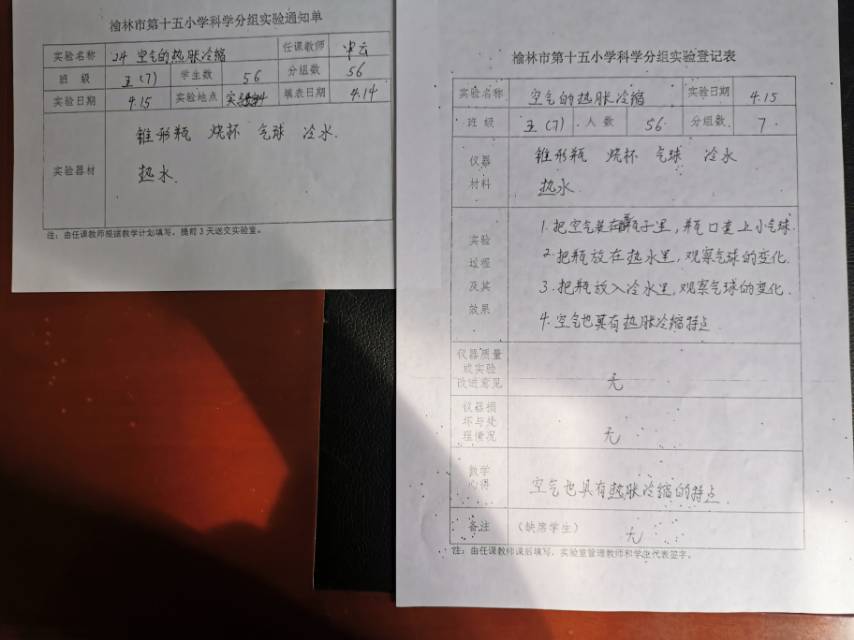 榆林市第十五小学科学分组实验通知单
实验名称 24 空气的热胀冷缩 任课教师
班 级 五(7) 学生数 56 分组数 56
实验日期 4.15 实验地点 填表日期 4.14
实验器材
锥形瓶 烧杯 气球 冷水.
热水.
注：由任课教师根据教学计划填写，提前3天送交实验室。
榆林市第十五小学科学分组实验登记表
实验名称 空气的热胀冷缩 实验日期 4.15
班 级 五(7) 人 数 56. 分组数 7.
仪器
材料
锥形瓶 烧杯 气球 冷水
热水.
实验
过程
及其
效果
1.把空气装在瓶子里，瓶口套上小气球.
2.把瓶放在热水里,观察气球的变化.
3.把瓶放入冷水里,观察气球的变化.
4.空气也具有热胀冷缩特点.
仪器质量
或实验
改进意见
无
仪器损
坏与处
理情况
无
教学
心得
空气也具有热胀冷缩的特点.
备注 (缺席学生) 无
注：由任课教师课后填写，实验室管理教师和学生代表签字。